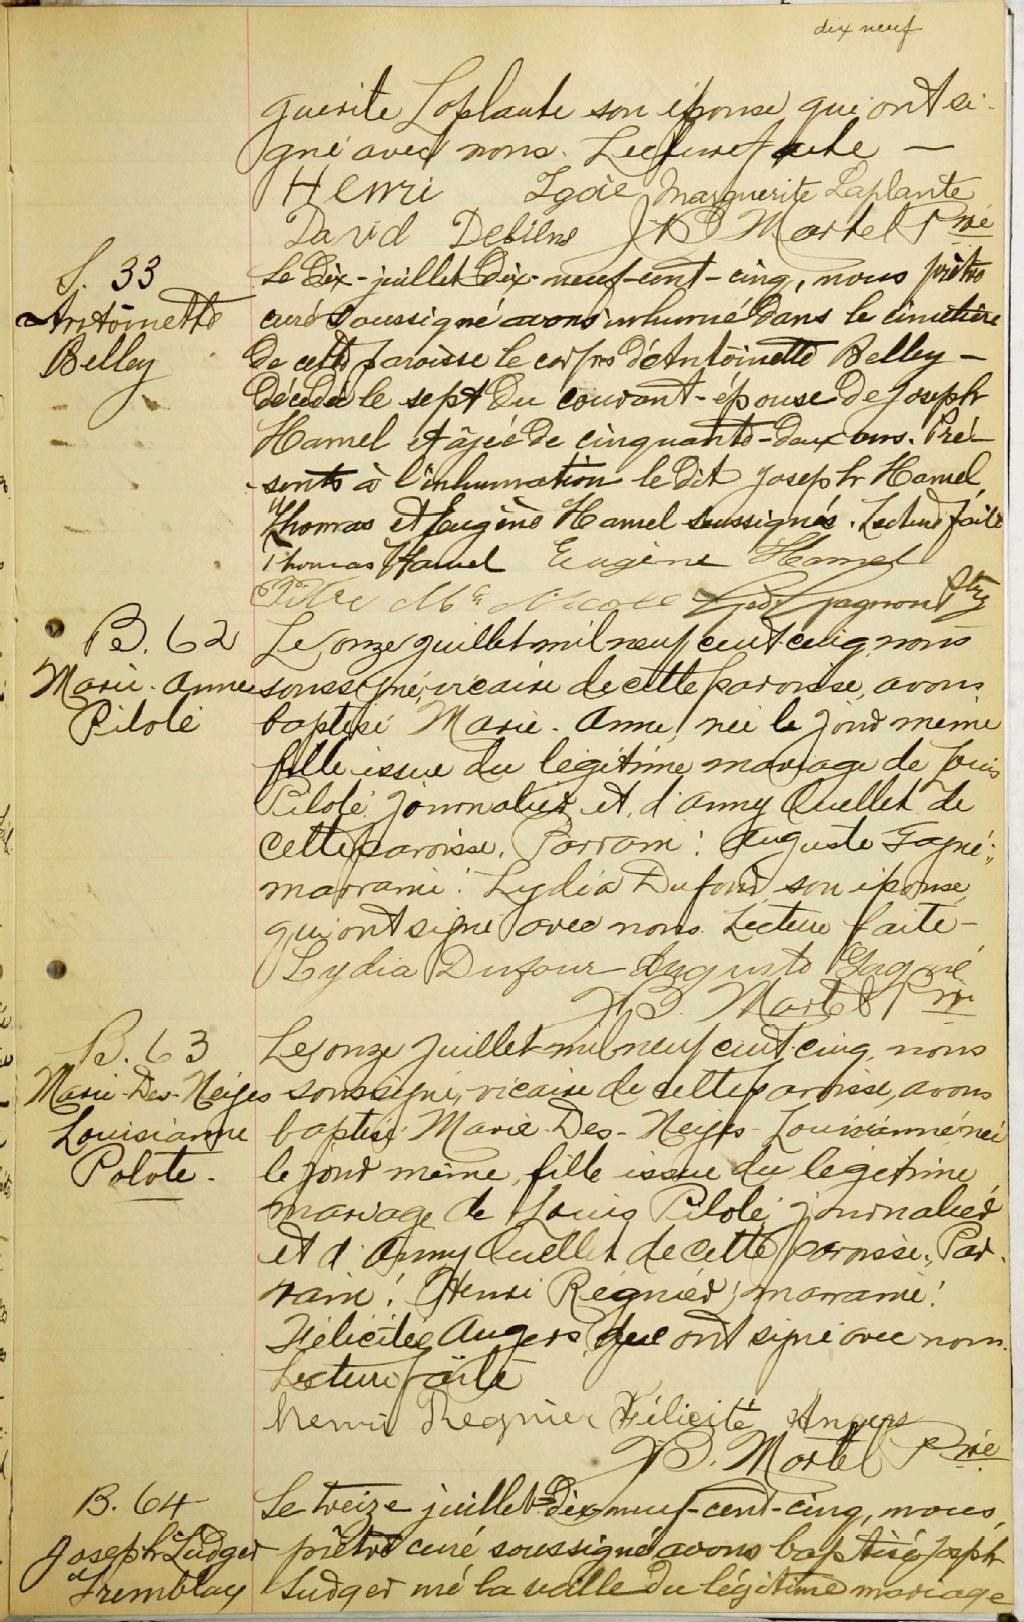 dix neuf
guerite Laplante son épouse qui ont si-
gné avec nous. Lecture faite —
Henri Marguerite Laplante
David Debiens J B Martel Ptre
S. 33
Antoinette
Belley
Le dix-juillet dix-neuf-cent-cinq, nous prêtre
curé soussigné avons inhumé dans le cimetière
de cette paroisse le corps d'Antoinette Belley —
décédée le sept du courant - épouse de Joseph
Hamel et âgée de cinquante-deux ans. Pré-
sents à l'inhumation le dit Joseph Hamel,
Thomas et Eugène Hamel soussignés. Lecture faite
Thomas Hamel Eugène Hamel
Gagnon Ptre
B. 62
Marie-Anne
Pilote
Le onze juillet mil neuf cent cinq, nous
soussigné, vicaire de cette paroisse, avons
baptisé Marie-Anne, née le jour même
fille issue du légitime mariage de Louis
Pilote journalier et d'Anny Ouellet de
cette paroisse. Parrain: Auguste Gagné;
marraine: Lydia Dufour son épouse,
qui ont signé avec nous. Lecture faite-
Lydia Dufour Auguste Gagné
J B. Martel Ptre
B. 63
Marie-Des-Neiges
Louisianne
Polote.
Le onze juillet mil neuf cent cinq, nous
soussigné, vicaire de cette paroisse, avons
baptisé Marie-Des-Neiges-Louisianne née
le jour même, fille issue du légitime
mariage de Louis Pilote, journalier
et d'Anny Ouellet de cette paroisse. Par-
rain: Henri Régnier, marraine:
Félicitée Angers qui ont signé avec nous.
Lecture faite
Henri Regnier Félicité Angers
J B. Martel Ptre
B. 64
Joseph Ludger
Tremblay
Le treize juillet dix-neuf-cent-cinq, nous,
prêtre curé soussigné avons baptisé Joseph
Ludger né la veille du légitime mariage